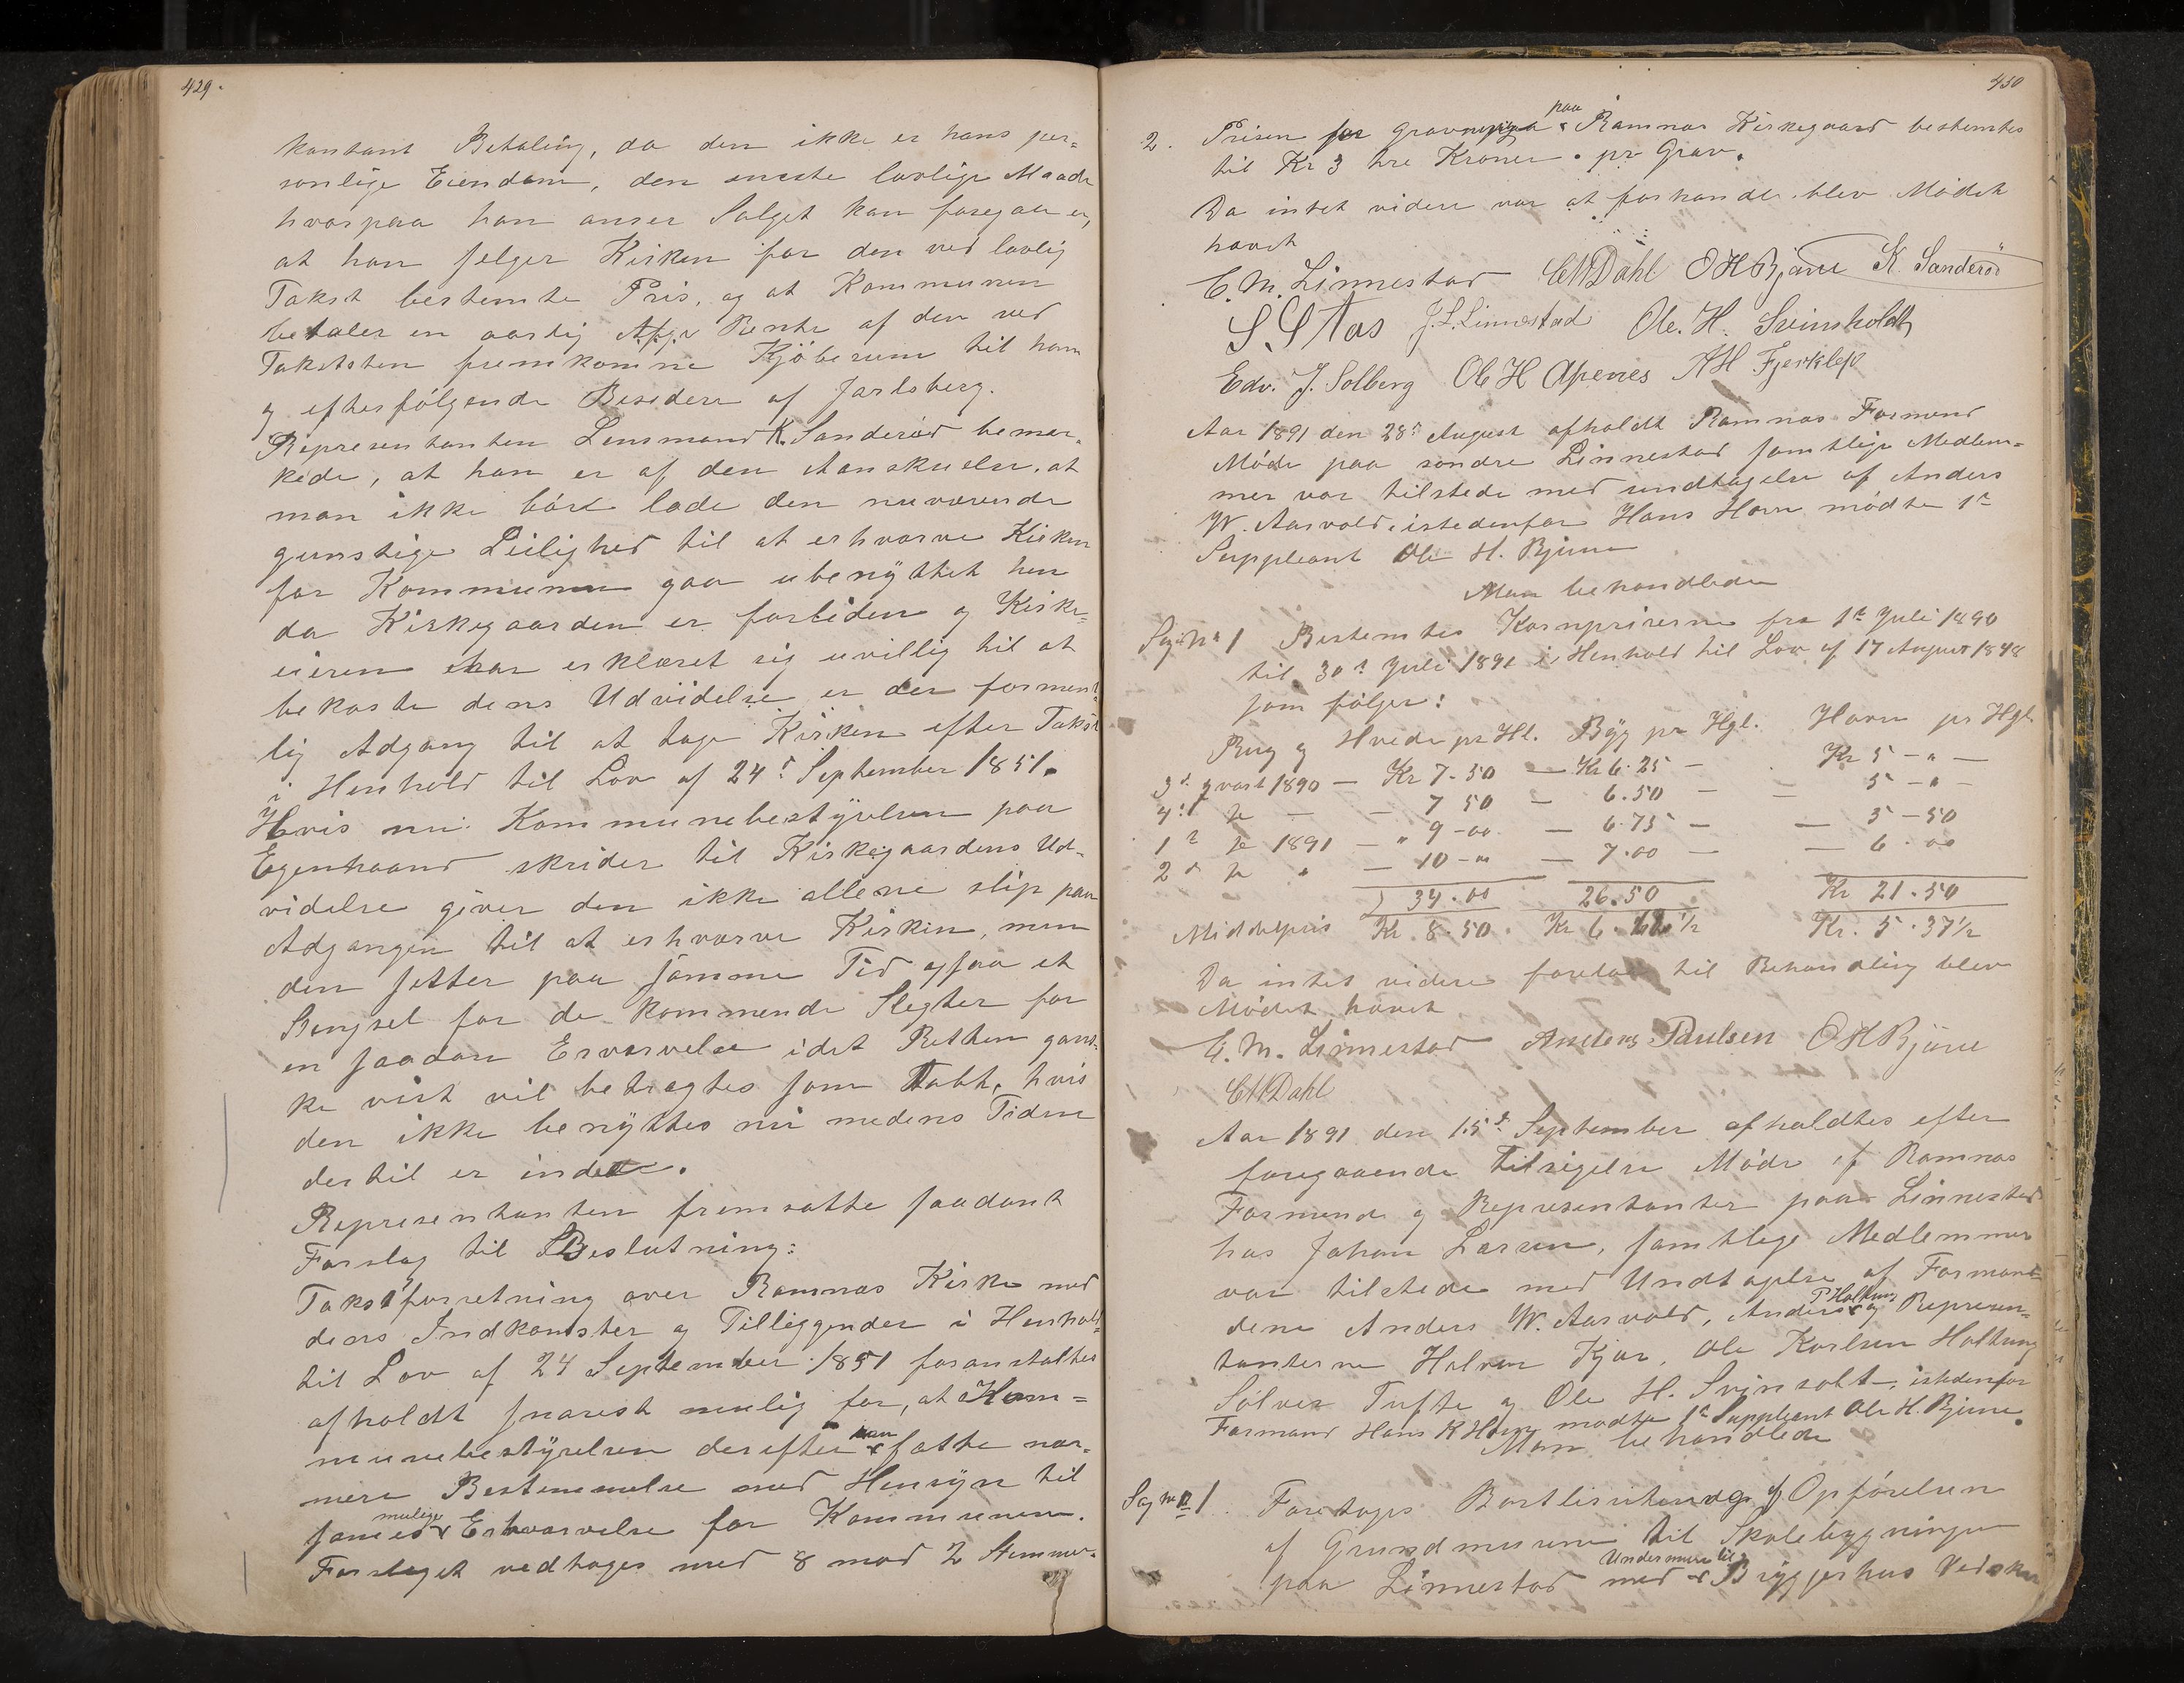 429.
kontant Betaling, da den ikke er hans per=
sonlige Eiendom, den eneste lovlige Maade
hvorpaa han anser Salget kan foregaa er,
at han selger Kirken for den ved lovlig
Takst bestemte Pris, og at Kommunen
betaler en aarlig Rente af den ved
Taksten fremkomne Kjöbesum til ham
og efterfölgende Besiddere af Jarlsberg.
Representanten Lensmand K. Sanderöd bemær=
kede, at han er af den Anskuelse, at
man ikke bör lade den nuværende
gunstige Leilighed til at erhverve Kirken
for Kommunen gaa ubenyttet hen
da Kirkegaarden er forliden og Kirke=
eieren har erklæret sig uvillig til at
bekoste dens Udvidelse er der forment=
lig Adgang til at tage Kirken efter Takst
i Henhold til Lov af 24de September 1851.
Hvis nu Kommunebestyrelsen paa
Egenhaand skrider til Kirkegaardens Ud=
videlse giver den ikke allene slip paa
Adgangen til at erhverve Kirken, men
den setter paa samme Tid ogsaa et
Stengsel for de kommende Slegter for
en saadan Erværvelse idet Retten gans=
ke vist vil betragtes som tabt, hvis
den ikke benyttes nu medens Tiden
dertil er inde.
Representanten fremsatte saadant
Forslag til Beslutning:
Takstforretning over Ramnæs Kirke med
dens Indkomster og Tilliggender i Henhold
til Lov af 24 September 1851 foranstaltes
afholdt snarest mulig for, at Kom=
munebestyrelsen derefter kan fatte nær=
mere Bestemmelse med Hensyn til
sammes mulige Erhværvelse for Kommunen.
Forslaget vedtoges med 8 mod 2 Stemmer.
450
2. Prisen for Gravning paa Ramnæs Kirkegaard bestemtes
til Kr 3 tre Kroner pr Grav.
Da intet videre var at forhandle blev Mödet
hævet
C. M. Linnestad CMDahl OHBjune K. Sanderöd
S. S. Aas J. L. Linnestad Ole. H. Svinsholdt
Edv. J. Solberg Ole H Apenes AH Fjerkslep
Aar 1891 den 28de August afholdt Ramnæs Formend
Möde paa söndre Linnestad samtlige Medlem=
mer var tilstede med undtagelse af Anders
W. Aasvold, istedenfor Hans Horn mödte 1ste
Suppleant Ole H. Bjune
Man behandlede
Sag No 1 Bestemtes Kornpriserne fra 1ste Juli 1890
til 30te Juli 1891 i Henhold til Lov af 17 August 1848
som fölger:
Rug og Hvede pr Hl. Byg pr Hgl. Havre pr Hgl
3de qvart 1890 — Kr 7-50 — Kr 6.25 — Kr 5 - " —
4de — — 7 50 — 6.50 — — 5 - " —
1ste 1891 — " 9-00 — 6.75 — — 5-50
2de " — 10-00 — 7.00 — — 6.00
34.00 26.50 Kr 21.50
Middelpris Kr. 8.50. Kr 6.62 1/2 Kr. 5.37 1/2
Da intet videre forelaa til Behandling blev
Mödet hævet
C. M. Linnestad Anders Paulsen OHBjune
CMDahl
Aar 1891 den 15de September afholdtes efter
foregaaende Tilsigelse Möde af Ramnæs
Formend og Representanter paa Linnestad
hos Johan Larsen, samtlige Medlemmer
var tilstede med Undtagelse af Formæn=
dene Anders W. Aasvold, Anders P Holtung og Represen=
tanterne Halvor Kjær, Ole Karlsen Holtung
Sölver Tufte og Ole H. Svinsolt, istedenfor
Formand Hans K Horn mödte 1ste Suppleant Ole H. Bjune.
Man behandlede
Sag No 1. Foretoges Bortlisitering af Opförelsen
af Grundmuren til Skolebygningen
paa Linnestad med Undermure til Bryggerhus Vedskur